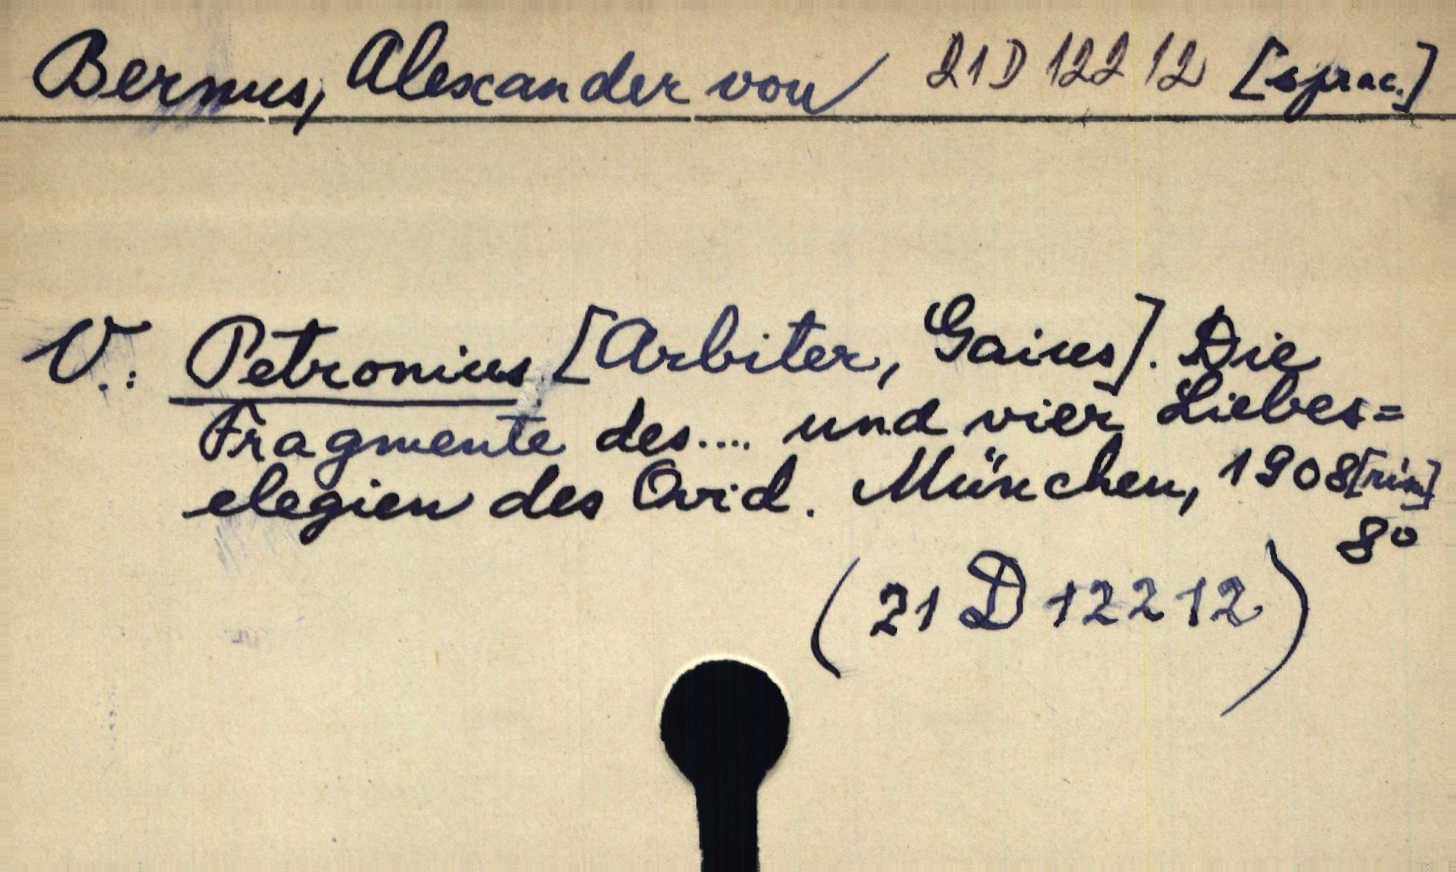 Bernus, Alexander von 21 D 12212 [oprac.]
V.: Petronius [Arbiter, Gaius]. Die
Fragmente des.... und vier Liebes=
elegien des Ovid. München, 1908[rim]
8⁰
(21 D 12212)